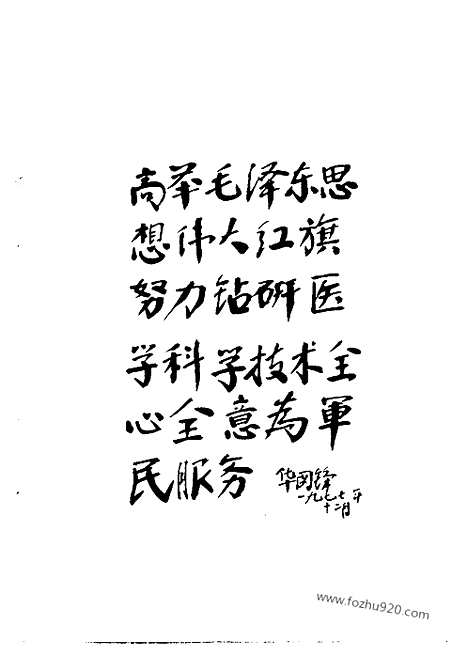 高举毛泽东思
想伟大红旗
努力钻研医
学科学技术全
心全意為軍
民服务
华国锋
一九七七年
十二月
www.fozhu920.com